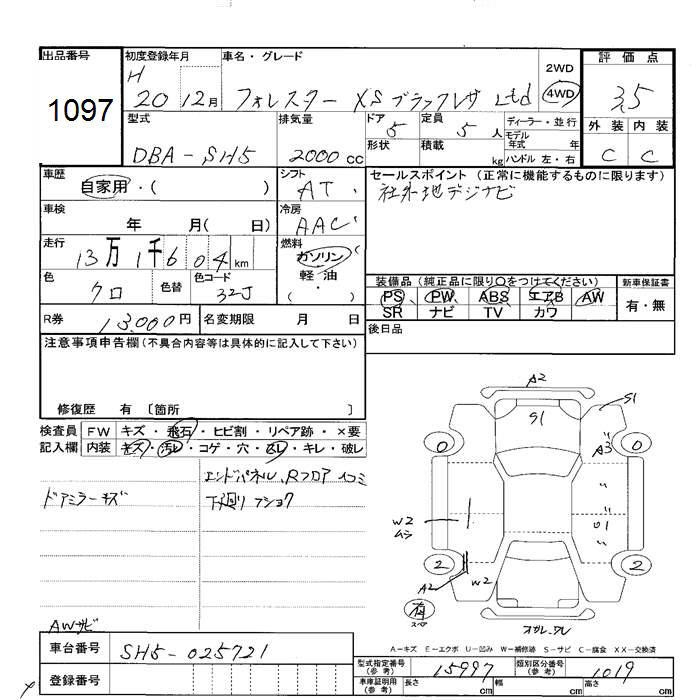 出品番号
1097
初度登録年月
H 20 12月
車名・グレード
フォレスター XSブラックレザ Ltd
2WD
4WD
評価点
3.5
外装 内装
C C
型式
DBA-SH5
排気量
2000 cc
ドア
5
形状
定員
5 人
積載
kg
ディーラー・並行
モデル
年式 年
ハンドル 左・右
車歴
自家用・( )
シフト
AT
セールスポイント (正常に機能するものに限ります)
社外地デジナビ
車検
年 月( 日)
冷房
AAC
走行
13万1千604km
燃料
ガソリン
軽・油
( ・ )
色
クロ
色替
色コード
32J
装備品 (純正品に限り〇をつけてください)
PS PW ABS エアB AW
SR ナビ TV カワ
新車保証書
有・無
R券
13,000円
名変期限 月 日
後日品
注意事項申告欄(不具合内容等は具体的に記入して下さい)
修復歴 有 〔箇所 〕
検査員
記入欄
FW キズ・飛石・ヒビ割・リペア跡・×要
内装 キズ・汚レ・コゲ・穴・ムレ・キレ・破レ
エンドパネル、Rフロア イコミ
ドアミラーキズ
下廻リ フショク
AWサビ
A2
S1
G1
0 0
A3
〃
〃
W2
ムシ
01
〃
2 2
A2
W2
有
スペア
A-キズ E-エクボ U-凹み W-補修跡 S-サビ C-腐食 XX-交換済
車台番号
SH5-025721
登録番号
型式指定番号
(参考)
15997
類別区分番号
(参考)
1019
車庫証明用
(参考)
長さ cm
幅 cm
高さ cm